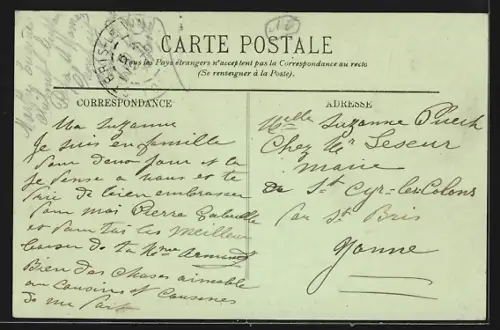 CARTE POSTALE
Tous les Pays étrangers n'acceptent pas la Correspondance au recto
(Se renseigner à la Poste).
CORRESPONDANCE
Ma Suzanne
Je suis en famille
pour deux jours et la
je pense a vous et te
prie de bien embrasser
pour moi Pierre Gabrielle
et pour toi les meilleurs
baiser de ta
Bien des choses aimable
au cousins et cousines
de ma part
ADRESSE
Melle Suzanne
Chez Mr Leseur
Maire
de St Cyr-les-Colons
par St Bris
Yonne